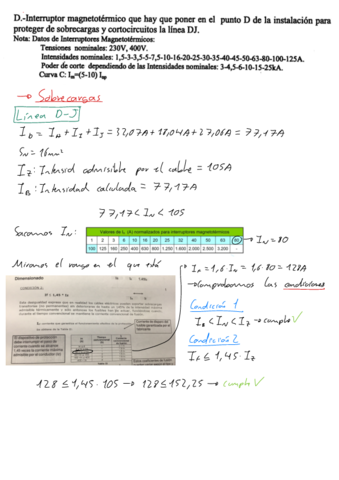 D.-Interruptor magnetotérmico que hay que poner en el punto D de la instalación para
proteger de sobrecargas y cortocircuitos la línea DJ.
Nota: Datos de Interruptores Magnetotérmicos:
Tensiones nominales: 230V, 400V.
Intensidades nominales: 1,5-3-3,5-5-7,5-10-16-20-25-30-35-40-45-50-63-80-100-125A.
Poder de corte dependiendo de las Intensidades nominales: 3-4,5-6-10-15-25kA.
Curva C: Im=(5-10) Inp
→ Sobrecargas
Línea D-J
IB = IH + II + IJ = 32,07A + 18,04A + 27,06A = 77,17A
SN = 16mm²
IZ: Intensidad admisible por el cable = 105A
IB: Intensidad calculada = 77,17A
77,17 < IN < 105
Sacamos IN:
Valores de In (A) normalizados para interruptores magnetotérmicos
1 2 3 6 10 16 20 25 32 40 50 63 80
→ IN = 80
Miramos el rango en el que está
→ IA = 1,6 IN = 1,6 · 80 = 128A
→ Comprobamos las condiciones
Condición 1
IB < IN < IZ → cumple ✓
Condición 2
IA ≤ 1,45 · IZ
128 ≤ 1,45 · 105 → 128 ≤ 152,25 → cumple ✓